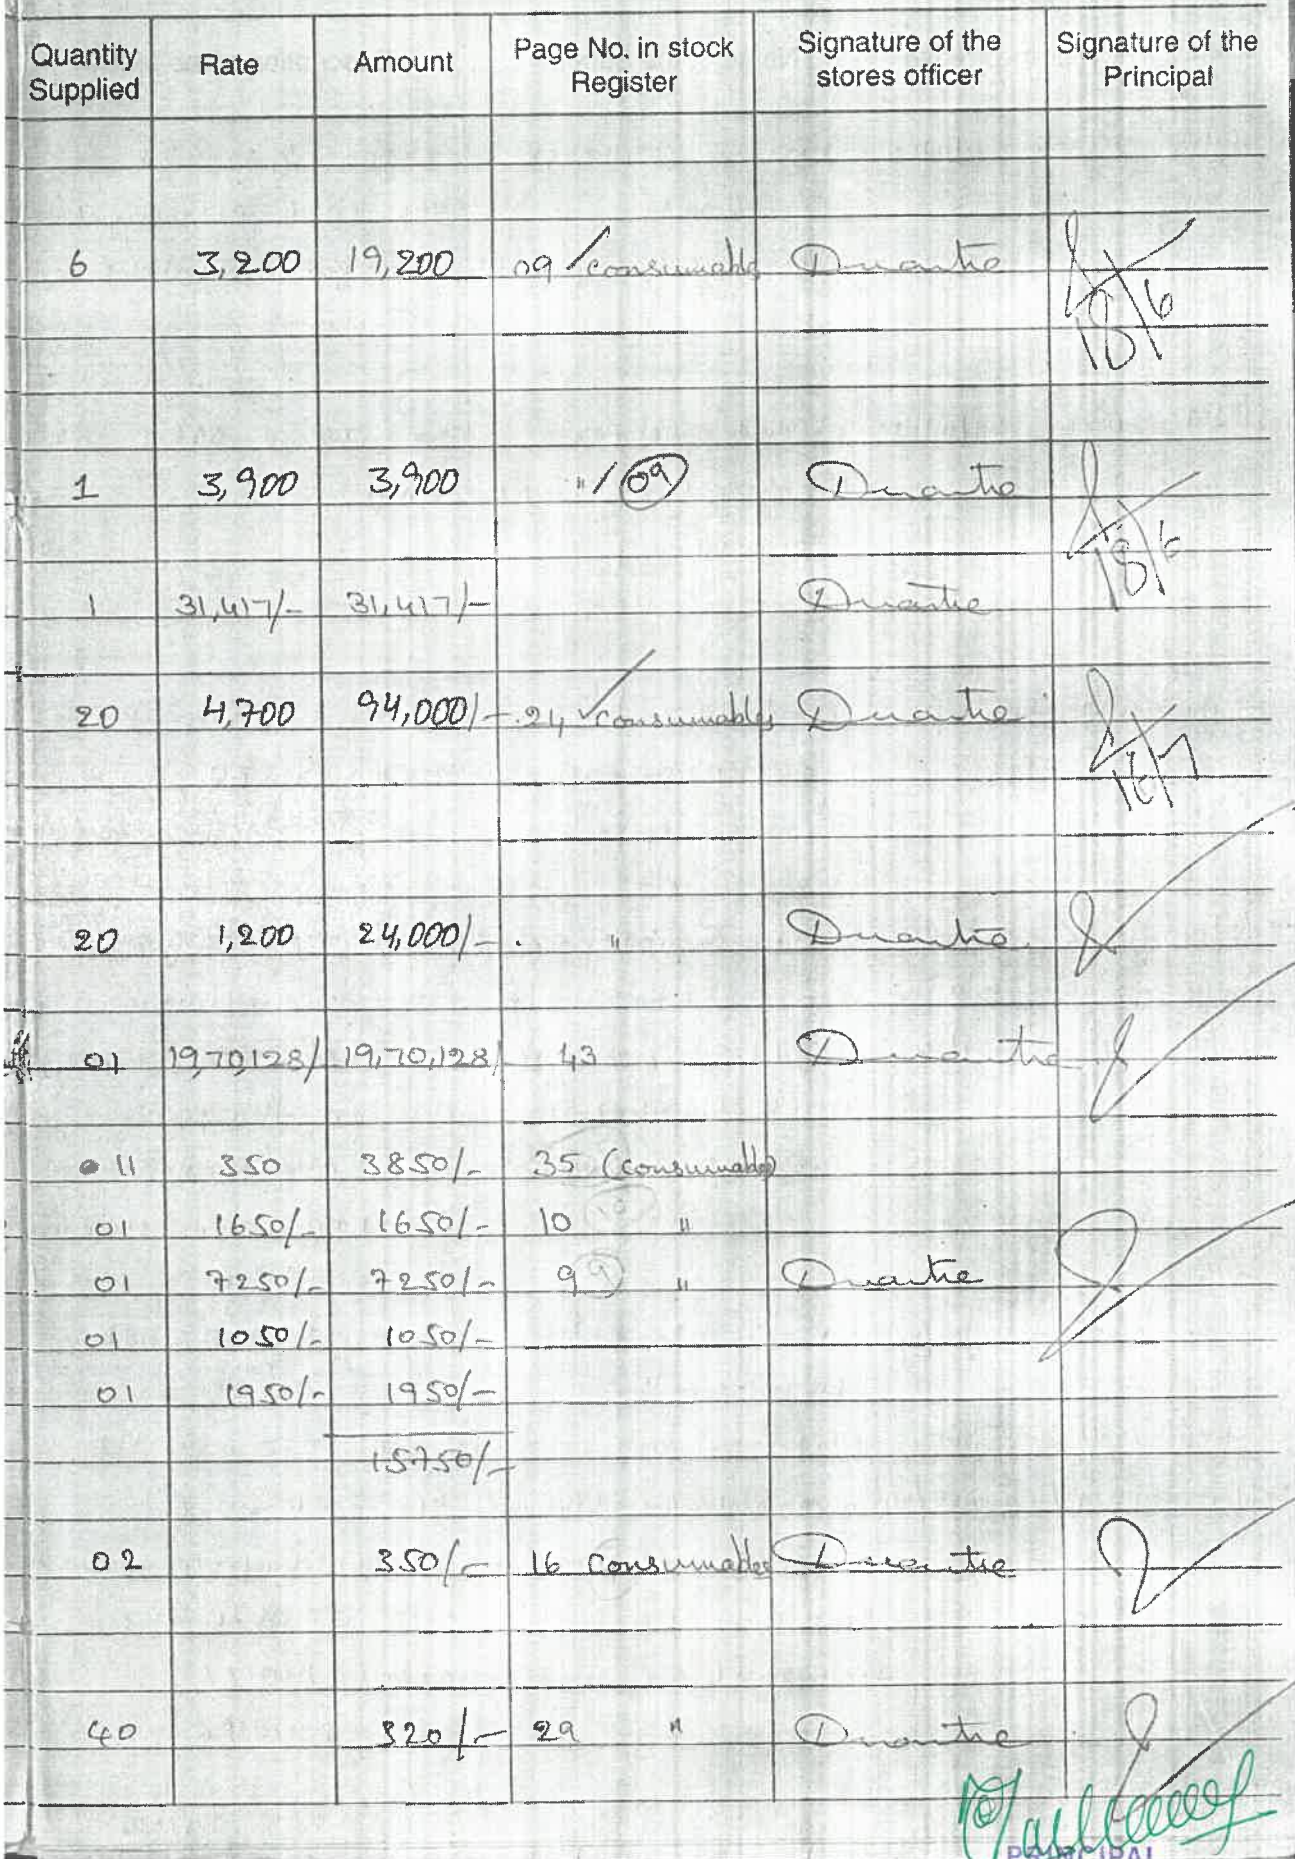 Quantity Supplied Rate Amount Page No. in stock Register Signature of the stores officer Signature of the Principal
6 3,200 19,200 09 / consumable Duarte
18/6
1 3,900 3,900 " / 09 Duarte
18/6
1 31,417/- 31,417/- Duarte
20 4,700 94,000/- 24 consumables Duarte
16/7
20 1,200 24,000/- " Duarte
01 19,70,128/ 19,70,128/ 43 Duarte
11 350 3850/- 35 (consumables)
01 1650/- 1650/- 10 "
01 7250/- 7250/- 9 9 " Duarte
01 1050/- 1050/-
01 1950/- 1950/-
15750/-
02 350/- 16 consumables Duarte
40 320/- 29 " Duarte
PRINCIPAL